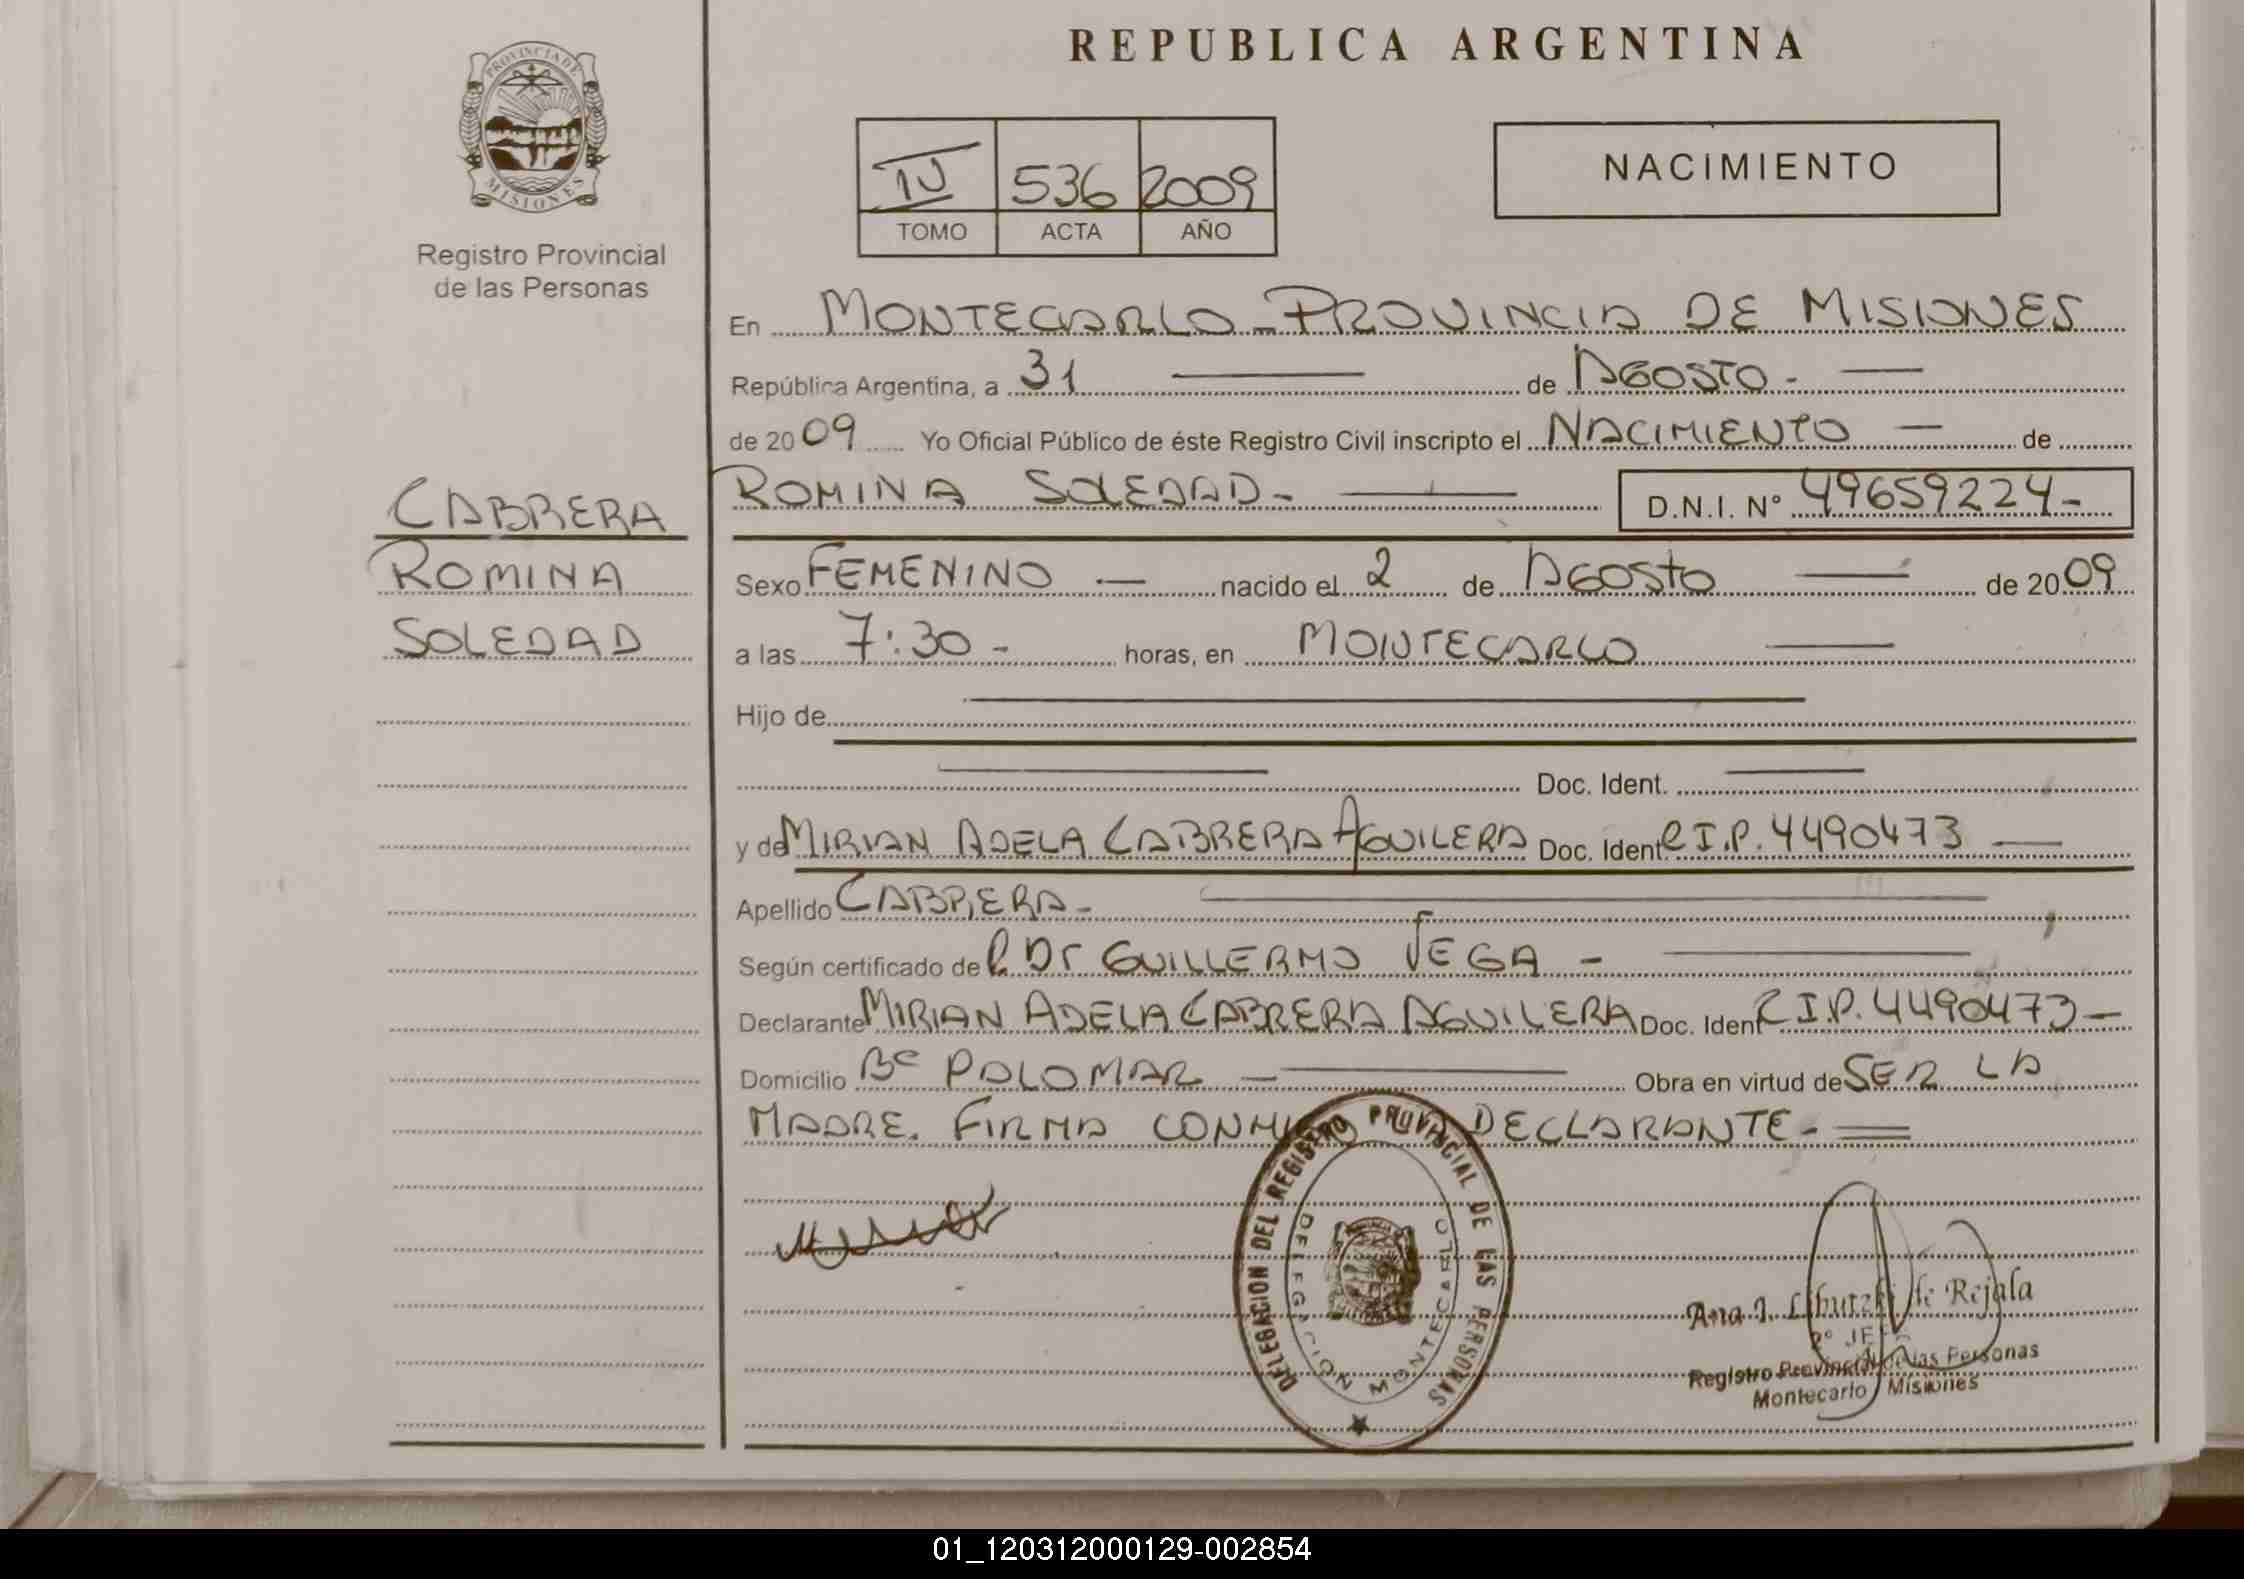 REPUBLICA ARGENTINA
PROVINCIA DE MISIONES
Registro Provincial
de las Personas
IV 536 2009
TOMO ACTA AÑO
NACIMIENTO
En MONTECARLO - PROVINCIA DE MISIONES
República Argentina, a 31 de AGOSTO -
de 2009 Yo Oficial Público de éste Registro Civil inscripto el NACIMIENTO de
CABRERA
ROMINA
SOLEDAD
ROMINA SOLEDAD - D.N.I. N° 49659224 -
Sexo FEMENINO nacido el 2 de AGOSTO de 2009
a las 7:30 - horas, en MONTECARLO
Hijo de
Doc. Ident.
y de MIRIAN ADELA CABRERA AGUILERA Doc. Ident. C.I.P. 4490473
Apellido CABRERA -
Según certificado del Dr GUILLERMO VEGA -
Declarante MIRIAN ADELA CABRERA AGUILERA Doc. Ident C.I.P. 4490473 -
Domicilio Bº PALOMAR - Obra en virtud de SER LA
MADRE. FIRMA DECLARANTE -
DELEGACION DEL REGISTRO PROVINCIAL DE LAS PERSONAS
DELEGACION MONTECARLO
Ana I. de Rejala
2º JEFE
Registro Provincial de las Personas
Montecarlo Misiones
01_120312000129-002854